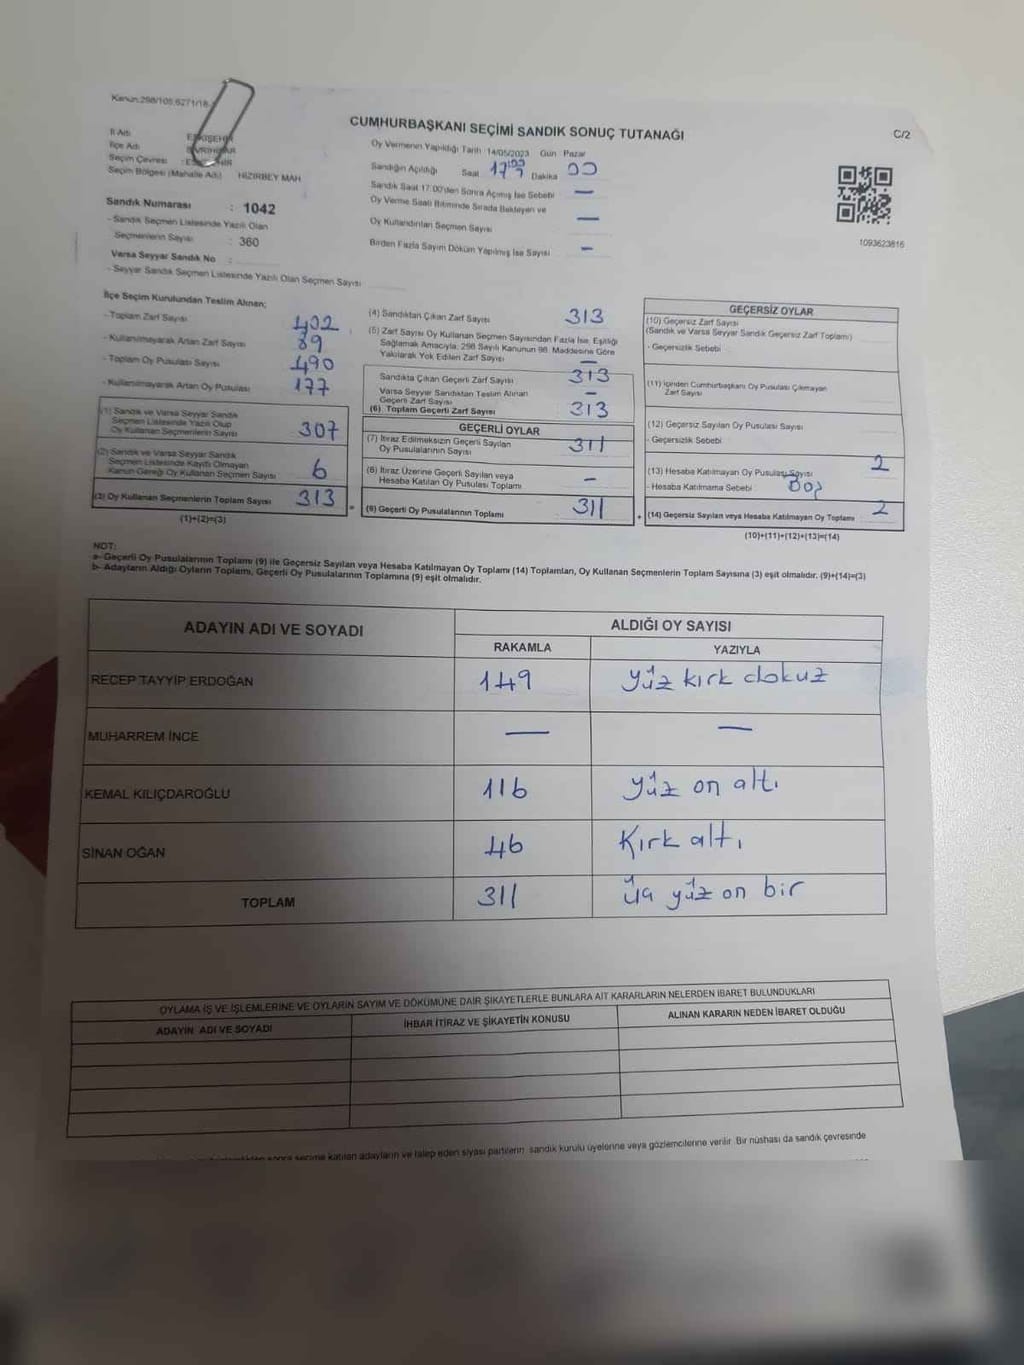 Kanun:298/105,6271/18-
CUMHURBAŞKANI SEÇİMİ SANDIK SONUÇ TUTANAĞI
C/2
İl Adı ESKİŞEHİR
İlçe Adı SİVRİHİSAR
Seçim Çevresi :ESKİŞEHİR
Seçim Bölgesi (Mahalle Adı) HIZIRBEY MAH.
Sandık Numarası : 1042
- Sandık Seçmen Listesinde Yazılı Olan
Seçmenlerin Sayısı : 360
Varsa Seyyar Sandık No :
- Seyyar Sandık Seçmen Listesinde Yazılı Olan Seçmen Sayısı
Oy Vermenin Yapıldığı Tarih :14/05/2023 Gün Pazar
Sandığın Açıldığı Saat 17:00 Dakika 00
Sandık Saat 17.00'den Sonra Açılmış İse Sebebi —
Oy Verme Saati Bitiminde Sırada Bekleyen ve
Oy Kullandırılan Seçmen Sayısı —
Birden Fazla Sayım Döküm Yapılmış İse Sayısı –
1093623816
İlçe Seçim Kurulundan Teslim Alınan;
- Toplam Zarf Sayısı 402
- Kullanılmayarak Artan Zarf Sayısı 89
- Toplam Oy Pusulası Sayısı 490
- Kullanılmayarak Artan Oy Pusulası 177
(1) Sandık ve Varsa Seyyar Sandık
Seçmen Listesinde Yazılı Olup
Oy Kullanan Seçmenlerin Sayısı 307
(2) Sandık ve Varsa Seyyar Sandık
Seçmen Listesinde Kayıtlı Olmayan
Kanun Gereği Oy Kullanan Seçmen Sayısı 6
(3) Oy Kullanan Seçmenlerin Toplam Sayısı 313
(1)+(2)=(3)
(4) Sandıktan Çıkan Zarf Sayısı 313
(5) Zarf Sayısı Oy Kullanan Seçmen Sayısından Fazla İse, Eşitliği
Sağlamak Amacıyla, 298 Sayılı Kanunun 98. Maddesine Göre
Yakılarak Yok Edilen Zarf Sayısı —
Sandıkta Çıkan Geçerli Zarf Sayısı 313
Varsa Seyyar Sandıktan Teslim Alınan
Geçerli Zarf Sayısı –
(6) Toplam Geçerli Zarf Sayısı 313
GEÇERLİ OYLAR
(7) İtiraz Edilmeksizin Geçerli Sayılan
Oy Pusulalarının Sayısı 311
(8) İtiraz Üzerine Geçerli Sayılan veya
Hesaba Katılan Oy Pusulası Toplamı –
(9) Geçerli Oy Pusulalarının Toplamı 311
GEÇERSİZ OYLAR
(10) Geçersiz Zarf Sayısı
(Sandık ve Varsa Seyyar Sandık Geçersiz Zarf Toplamı)
- Geçersizlik Sebebi
(11) İçinden Cumhurbaşkanı Oy Pusulası Çıkmayan
Zarf Sayısı
(12) Geçersiz Sayılan Oy Pusulası Sayısı
- Geçersizlik Sebebi
(13) Hesaba Katılmayan Oy Pusulası Sayısı 2
- Hesaba Katılmama Sebebi Boş
(14) Geçersiz Sayılan veya Hesaba Katılmayan Oy Toplamı 2
(10)+(11)+(12)+(13)=(14)
NOT:
a- Geçerli Oy Pusulalarının Toplamı (9) ile Geçersiz Sayılan veya Hesaba Katılmayan Oy Toplamı (14) Toplamları, Oy Kullanan Seçmenlerin Toplam Sayısına (3) eşit olmalıdır. (9)+(14)=(3)
b- Adayların Aldığı Oyların Toplamı, Geçerli Oy Pusulalarının Toplamına (9) eşit olmalıdır.
ADAYIN ADI VE SOYADI ALDIĞI OY SAYISI
RAKAMLA YAZIYLA
RECEP TAYYİP ERDOĞAN 149 Yüz kırk dokuz
MUHARREM İNCE — —
KEMAL KILIÇDAROĞLU 116 Yüz on altı
SİNAN OĞAN 46 Kırk altı
TOPLAM 311 üç yüz on bir
OYLAMA İŞ VE İŞLEMLERİNE VE OYLARIN SAYIM VE DÖKÜMÜNE DAİR ŞİKAYETLERLE BUNLARA AİT KARARLARIN NELERDEN İBARET BULUNDUKLARI
ADAYIN ADI VE SOYADI İHBAR İTİRAZ VE ŞİKAYETİN KONUSU ALINAN KARARIN NEDEN İBARET OLDUĞU
sonra seçime katılan adayların ve talep eden siyasi partilerin sandık kurulu üyelerine veya gözlemcilerine verilir. Bir nüshası da sandık çevresinde